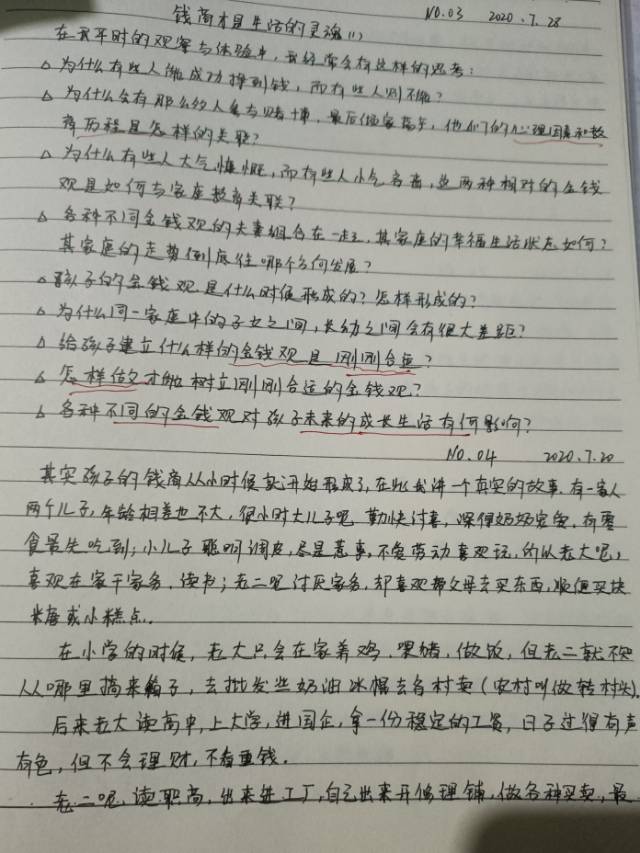 NO.03 2020.7.28
钱商才是生活的灵魂(1)
在我平时的观察与体验中,我经常会有这样的思考:
为什么有些人能成功挣到钱,而有些人则不能?
为什么会有那么多人参与赌博,最后倾家荡产,他们的心理因素和教
育历程是怎样的关联?
为什么有些人大气慷慨,而有些人小气吝啬,这两种相对的金钱
观是如何与家庭教育关联?
各种不同金钱观的夫妻组合在一起,其家庭的幸福生活状态如何?
其家庭的走势倒底往哪个方向发展?
孩子的金钱观是什么时候形成的?怎样形成的?
为什么同一家庭中的子女之间,长幼之间会有很大差距?
给孩子建立什么样的金钱观是刚刚合适?
怎样做才能树立刚刚合适的金钱观?
各种不同的金钱观对孩子未来的成长生活有何影响?
NO.04 2020.7.20
其实孩子的钱商从小时候就开始形成了,在此我讲一个真实的故事,有一家人
两个儿子,年龄相差也不大,很小时大儿子呢,勤快讨喜,深得奶奶宠爱,有零
食最先吃到;小儿子聪明调皮,尽是惹事,不爱劳动喜欢玩,所以老大呢,
喜欢在家干家务,读书;老二呢讨厌家务,却喜欢帮父母去买东西,顺便买块
米海或小糕点.
在小学的时候,老大只会在家养鸡,喂猪,做饭,但老二就不知
从哪里搞来箱子,去批发些奶油冰棍去各村卖(农村叫做转村头).
后来老大读高中,上大学,进国企,拿一份稳定的工资,日子过得有声
有色,但不会理财,不看重钱.
老二呢,读职高,出来进工厂,自己出来开修理铺,做各种买卖,最